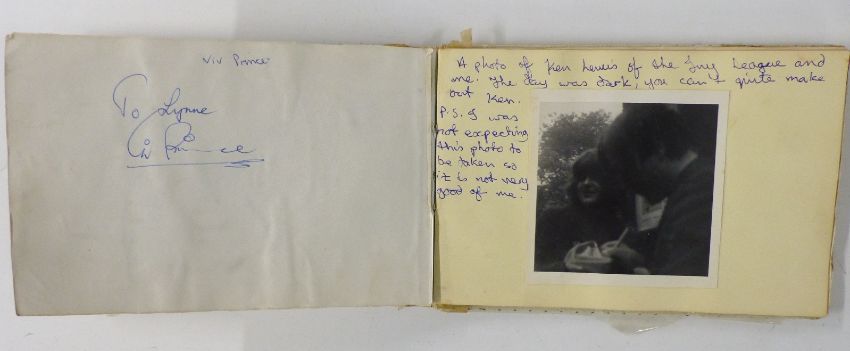 Viv Prince
To Lynne
Viv Prince
A photo of Ken Lewis of the Ivy League and
me. The day was dark, you can't quite make
out Ken.
P.S. I was
not expecting
this photo to
be taken so
it is not very
good of me.